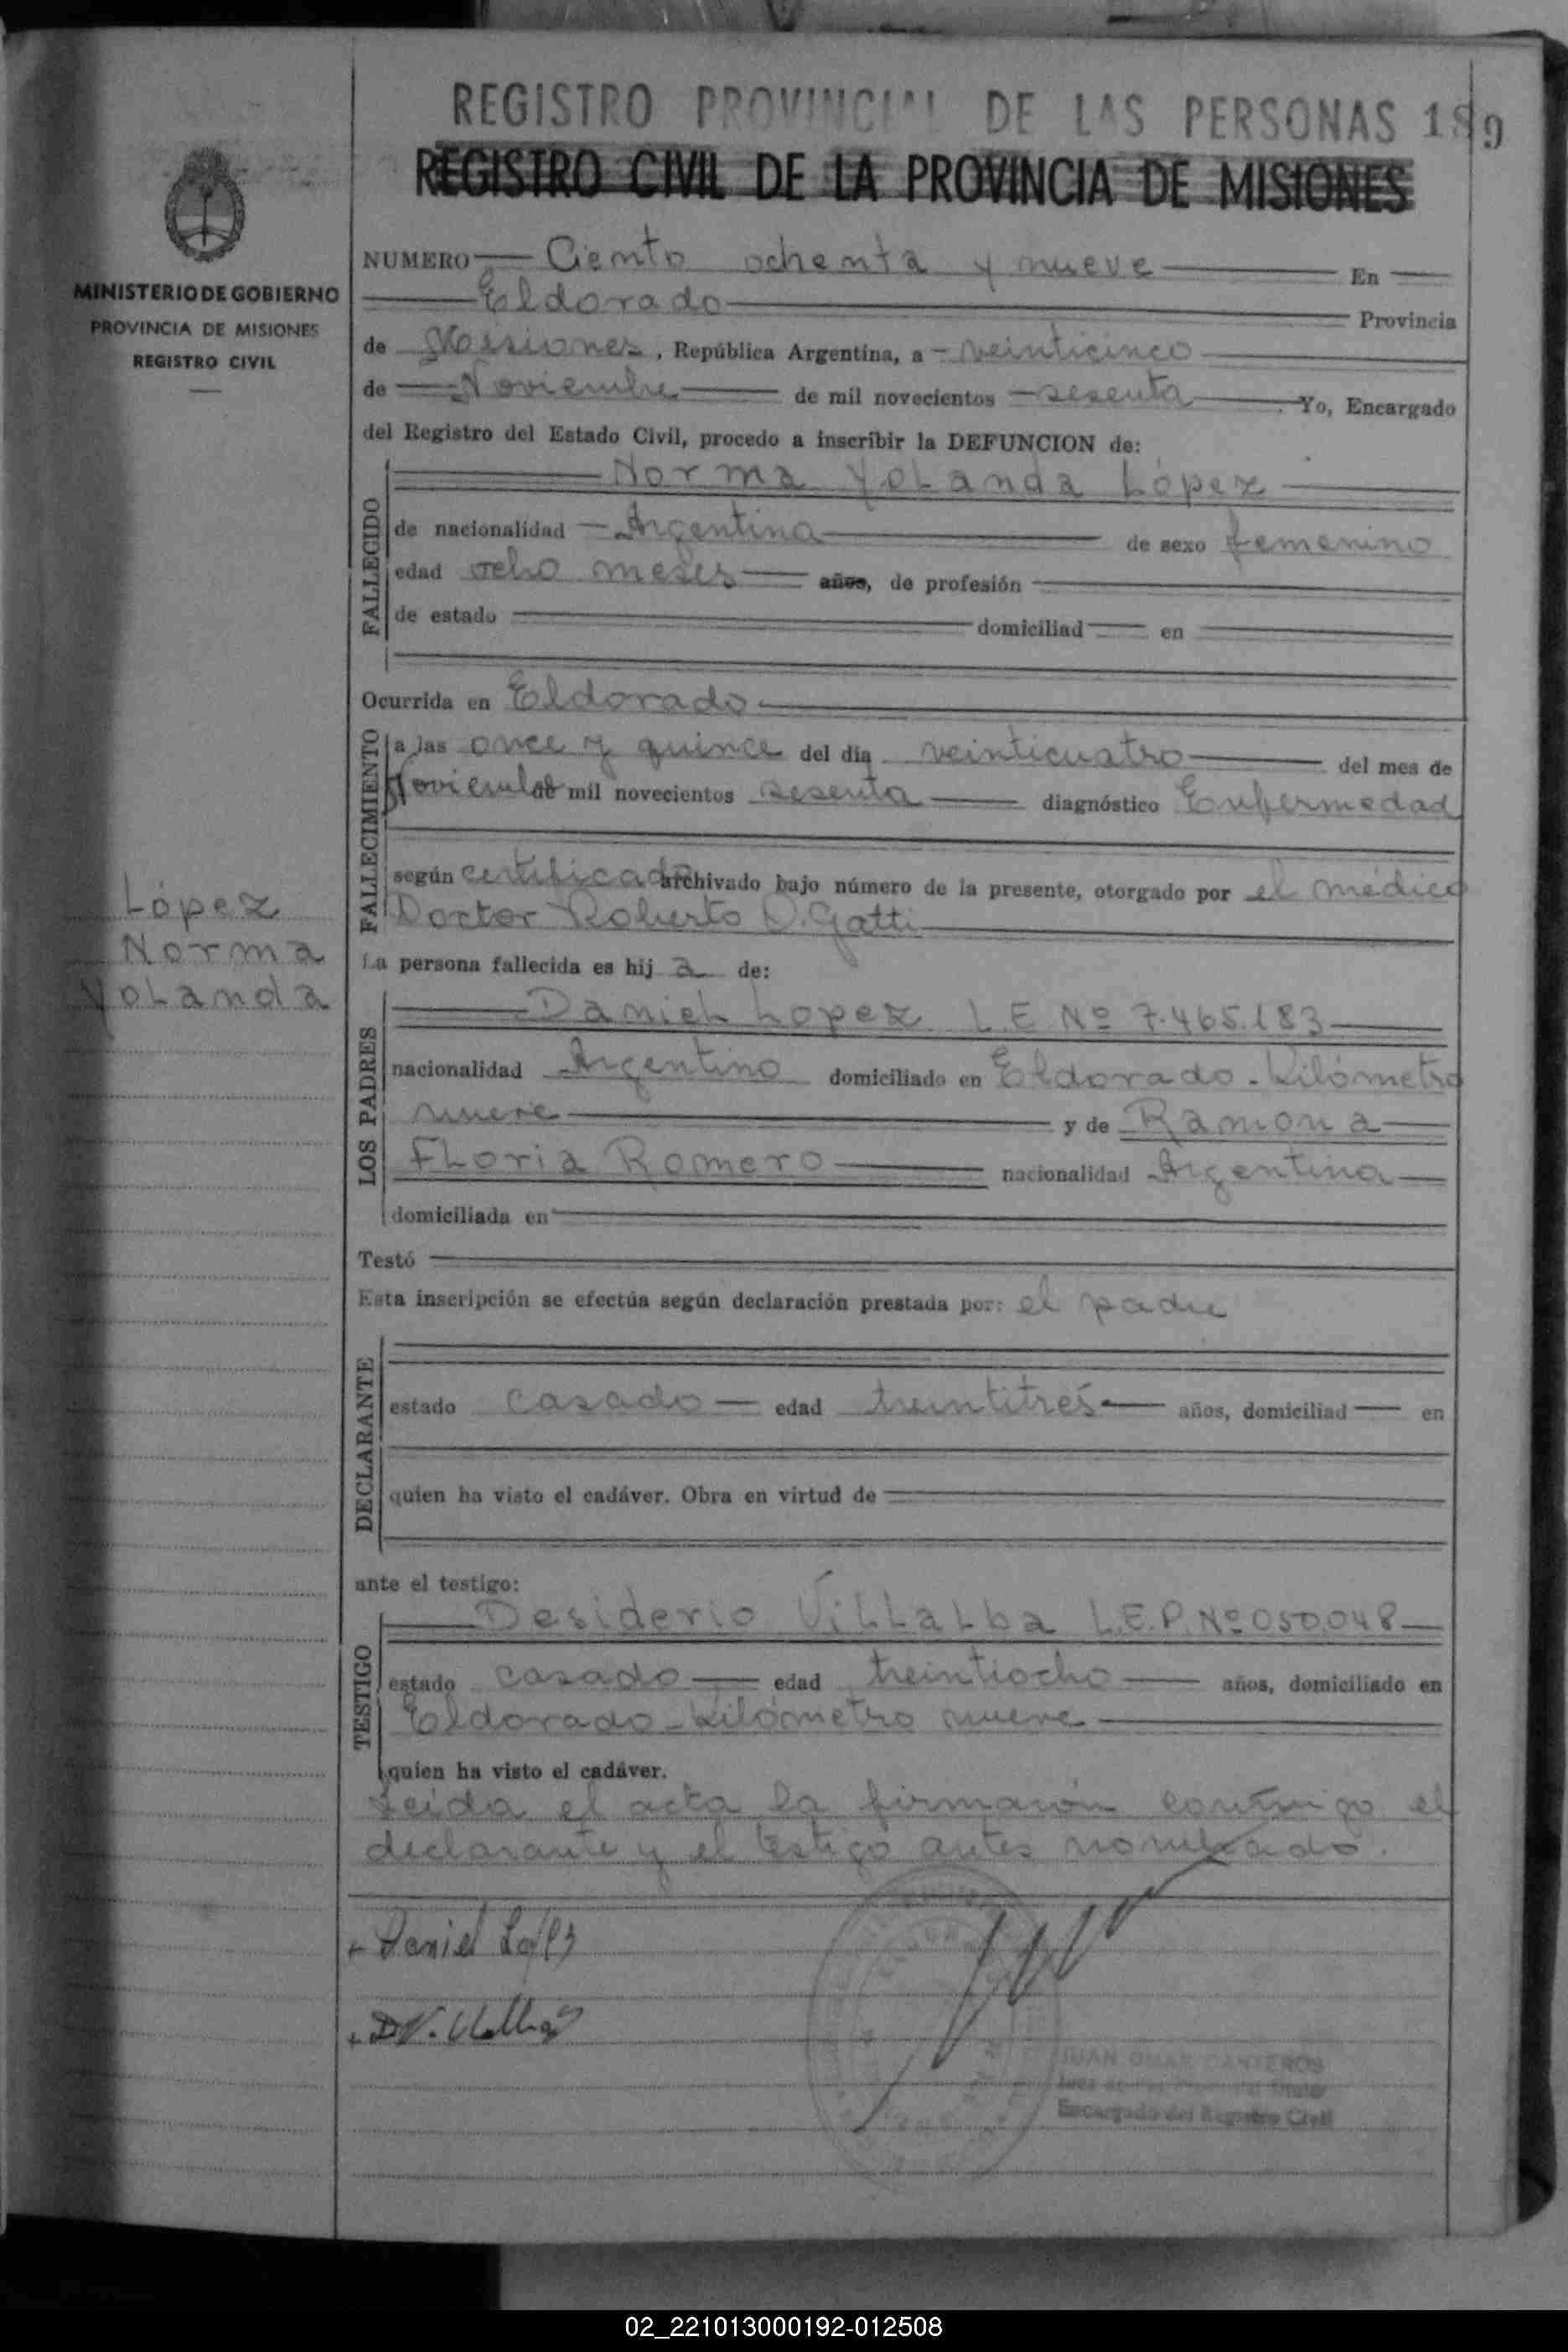 REGISTRO PROVINCIAL DE LAS PERSONAS 189
REGISTRO CIVIL DE LA PROVINCIA DE MISIONES
MINISTERIO DE GOBIERNO
PROVINCIA DE MISIONES
REGISTRO CIVIL
NUMERO Ciento ochenta y nueve En
Eldorado Provincia
de Misiones, República Argentina, a veinticinco
de Noviembre de mil novecientos sesenta. Yo, Encargado
del Registro del Estado Civil, procedo a inscribir la DEFUNCION de:
FALLECIDO
Norma Yolanda López
de nacionalidad Argentina de sexo femenino
edad ocho meses años, de profesión
de estado domiciliad en
Ocurrida en Eldorado
FALLECIMIENTO
a las once y quince del día veinticuatro del mes de
Noviembre de mil novecientos sesenta diagnóstico Enfermedad
según certificado archivado bajo número de la presente, otorgado por el médico
Doctor Roberto O. Gatti
López
Norma
Yolanda
La persona fallecida es hij a de:
LOS PADRES
Daniel Lopez L.E. Nº 7.465.183
nacionalidad Argentino domiciliado en Eldorado - Kilómetro
nueve y de Ramona
Floria Romero nacionalidad Argentina
domiciliada en
Testó
Esta inscripción se efectúa según declaración prestada por: el padre
DECLARANTE
estado casado edad treintitrés años, domiciliad en
quien ha visto el cadáver. Obra en virtud de
ante el testigo:
TESTIGO
Desiderio Villalba L.E.P. Nº 050.048
estado casado edad treintiocho años, domiciliado en
Eldorado - Kilómetro nueve
quien ha visto el cadáver.
Leída el acta la firmaron conmigo el
declarante y el testigo antes nombrado.
Daniel Lopez
JUAN OMAR CANTEROS
Encargado del Registro Civil
02_221013000192-012508